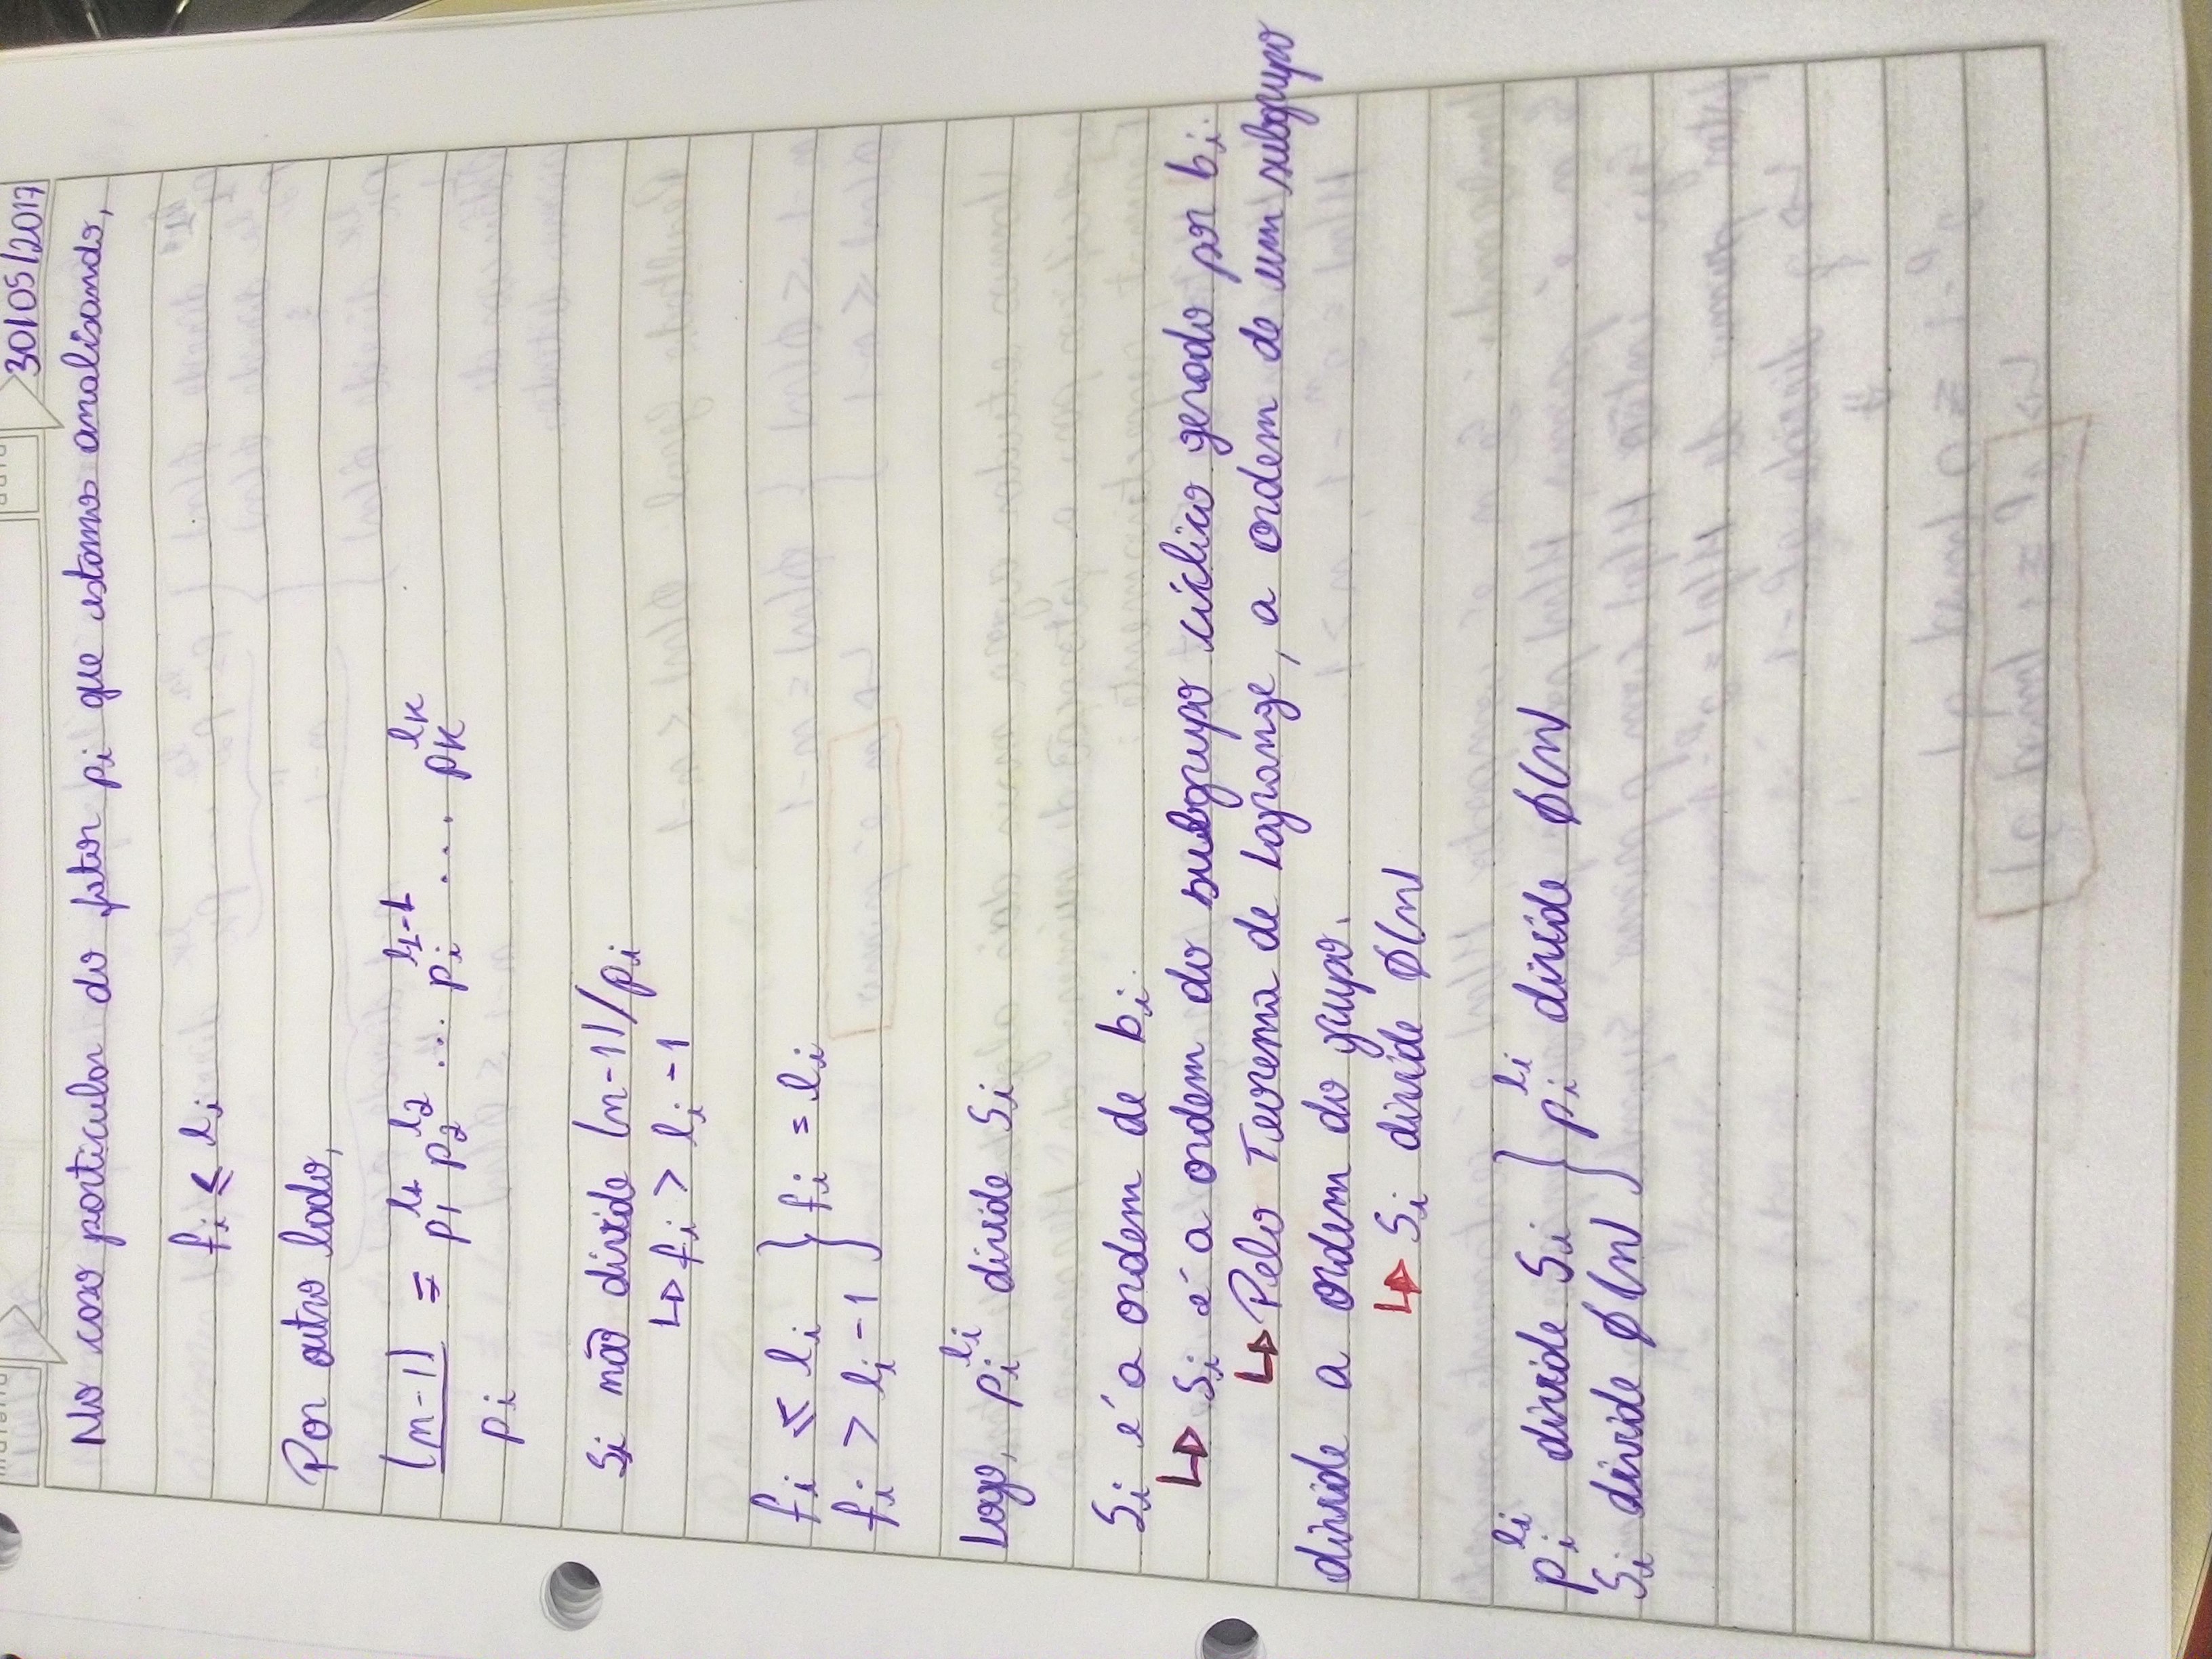 30/05/2017
No caso particular do fator pi que estamos analisando,
fi ≤ li
Por outro lado,
(n-1)/pi = p1^l1 p2^l2 ... pi^l1-1 ... pk^lk
Si não divide (n-1)/pi
↳ fi > li -1
fi ≤ li } fi = li
fi > li -1
Logo, pi^li divide Si
Si é a ordem de bi.
↳ Si é a ordem do subgrupo cíclico gerado por bi.
↳ Pelo Teorema de Lagrange, a ordem de um subgrupo
divide a ordem do grupo.
↳ Si divide ϕ(n)
pi^li divide Si } pi^li divide ϕ(n)
Si divide ϕ(n)